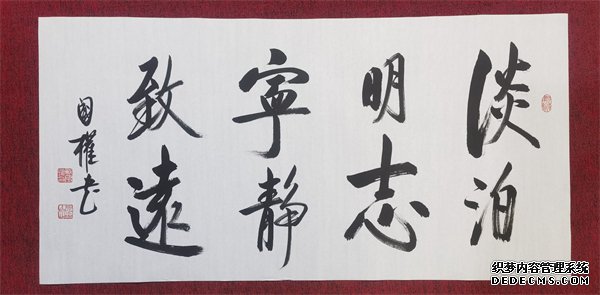 淡泊
明志
寧静
致遠
國權书
织梦内容管理系统
DEDECMS.COM